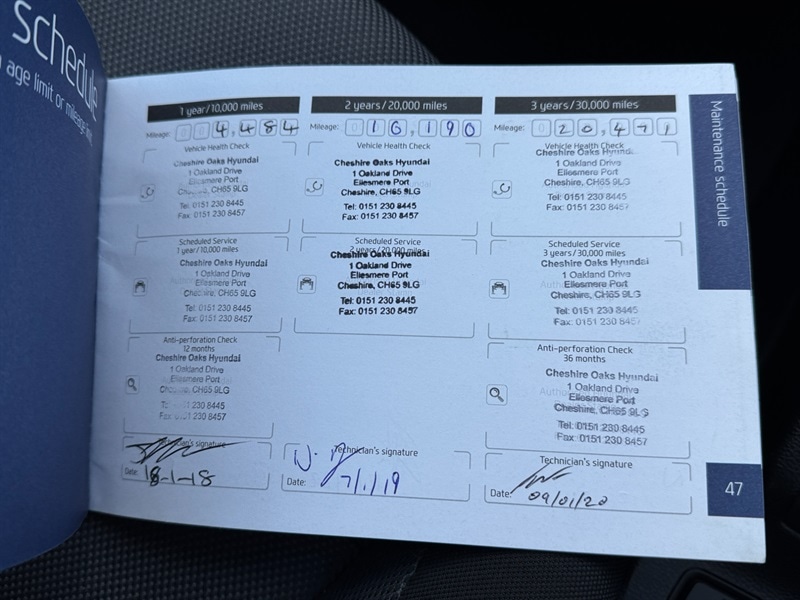 schedule
age limit or mileage
Maintenance schedule
1 year/10,000 miles
Mileage: 0 0 4,4 8 4
Vehicle Health Check
Cheshire Oaks Hyundai
1 Oakland Drive
Ellesmere Port
Cheshire, CH65 9LG
Tel: 0151 230 8445
Fax: 0151 230 8457
Scheduled Service
1 year/10,000 miles
Cheshire Oaks Hyundai
1 Oakland Drive
Ellesmere Port
Cheshire, CH65 9LG
Tel: 0151 230 8445
Fax: 0151 230 8457
Anti-perforation Check
12 months
Cheshire Oaks Hyundai
1 Oakland Drive
Ellesmere Port
Cheshire, CH65 9LG
Tel: 0151 230 8445
Fax: 0151 230 8457
Technician's signature
Date: 18-1-18
2 years/20,000 miles
Mileage: 0 1 6,1 9 0
Vehicle Health Check
Cheshire Oaks Hyundai
1 Oakland Drive
Ellesmere Port
Cheshire, CH65 9LG
Tel: 0151 230 8445
Fax: 0151 230 8457
Scheduled Service
2 years/20,000 miles
Cheshire Oaks Hyundai
1 Oakland Drive
Ellesmere Port
Cheshire, CH65 9LG
Tel: 0151 230 8445
Fax: 0151 230 8457
Technician's signature
Date: 7/1/19
3 years/30,000 miles
Mileage: 0 2 0,4 7 1
Vehicle Health Check
Cheshire Oaks Hyundai
1 Oakland Drive
Ellesmere Port
Cheshire, CH65 9LG
Tel: 0151 230 8445
Fax: 0151 230 8457
Scheduled Service
3 years/30,000 miles
Cheshire Oaks Hyundai
1 Oakland Drive
Ellesmere Port
Cheshire, CH65 9LG
Tel: 0151 230 8445
Fax: 0151 230 8457
Anti-perforation Check
36 months
Cheshire Oaks Hyundai
1 Oakland Drive
Ellesmere Port
Cheshire, CH65 9LG
Tel: 0151 230 8445
Fax: 0151 230 8457
Technician's signature
Date: 09/01/20
47